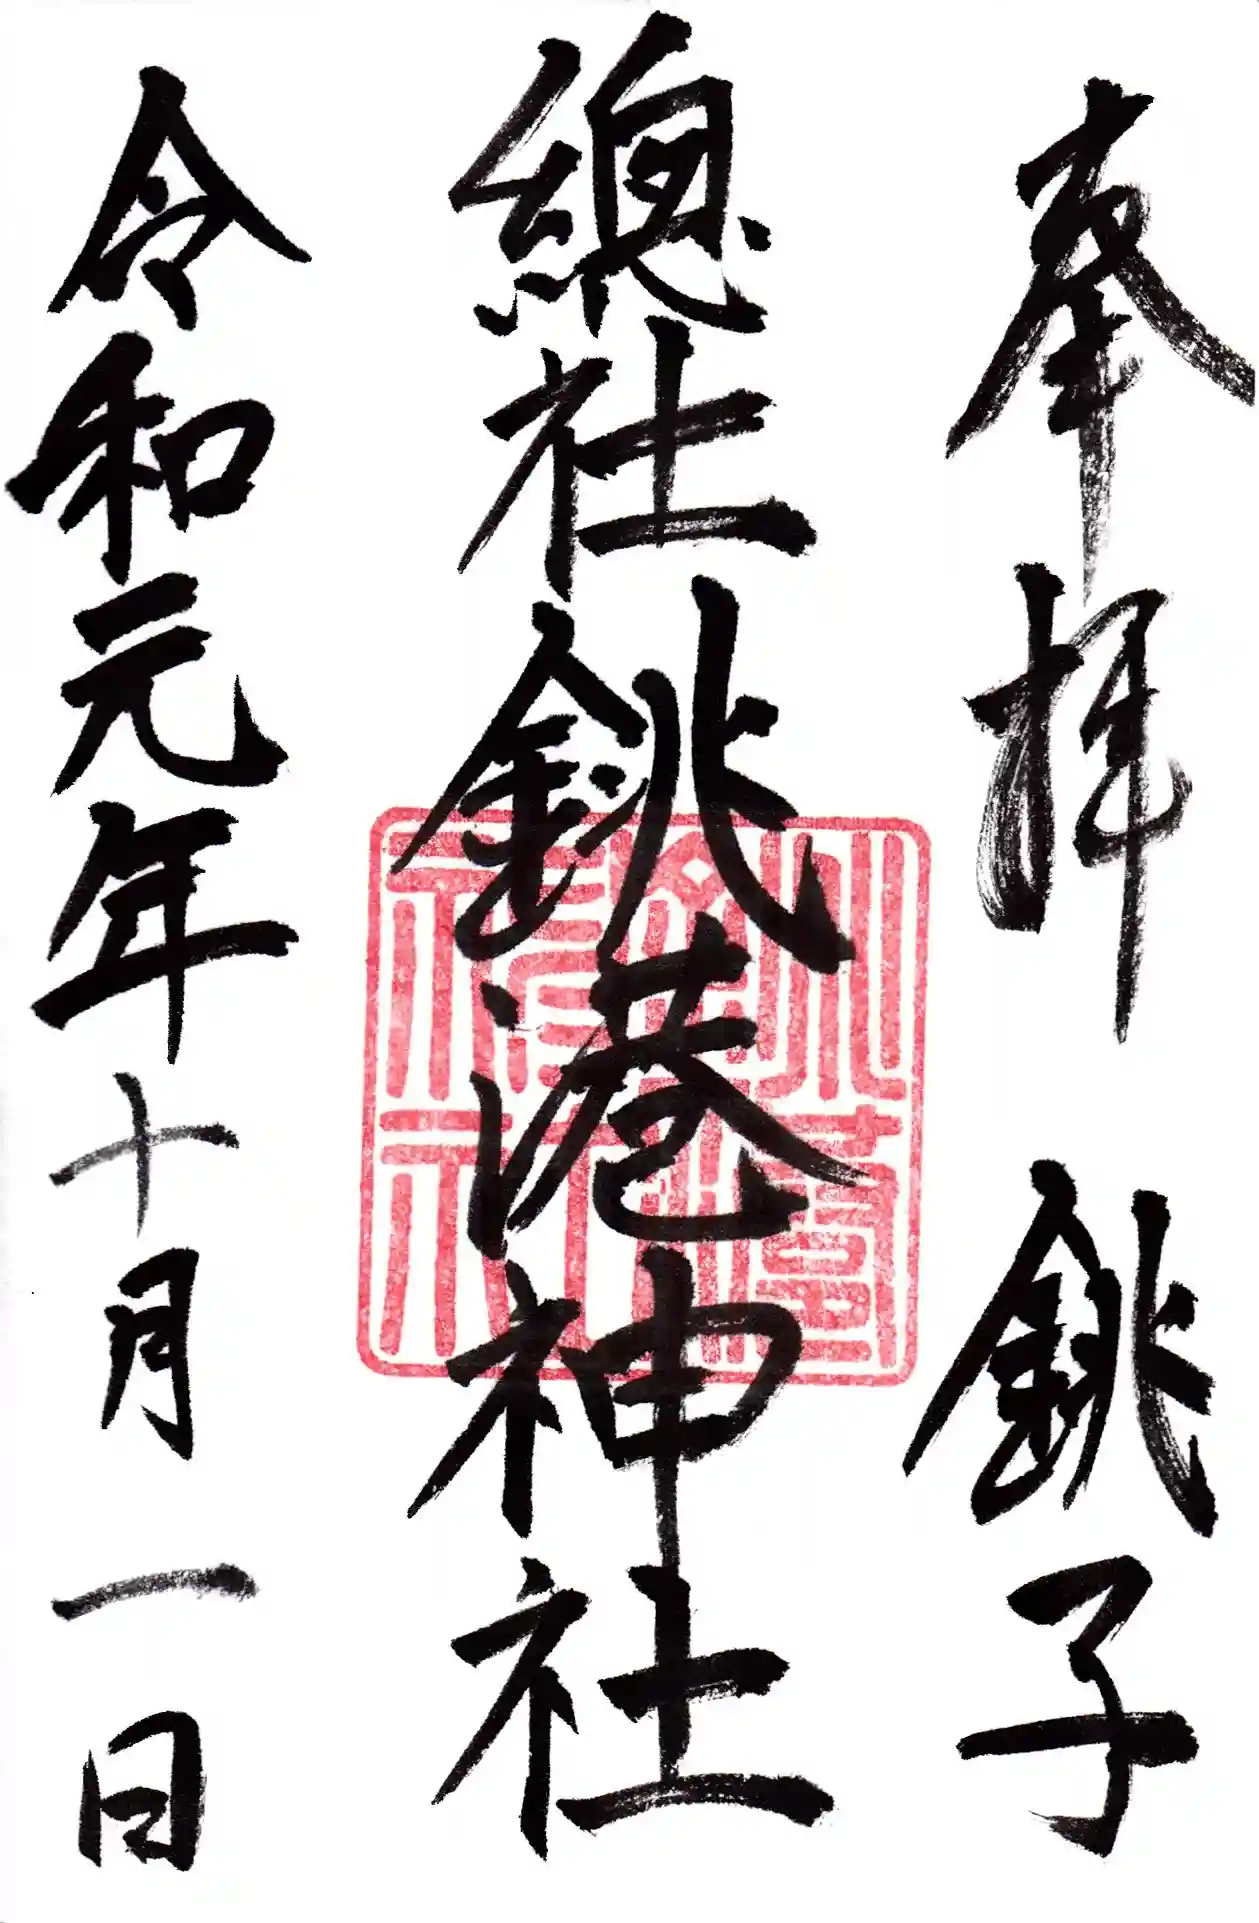 奉拝　銚子
總社銚港神社
令和元年十月一日